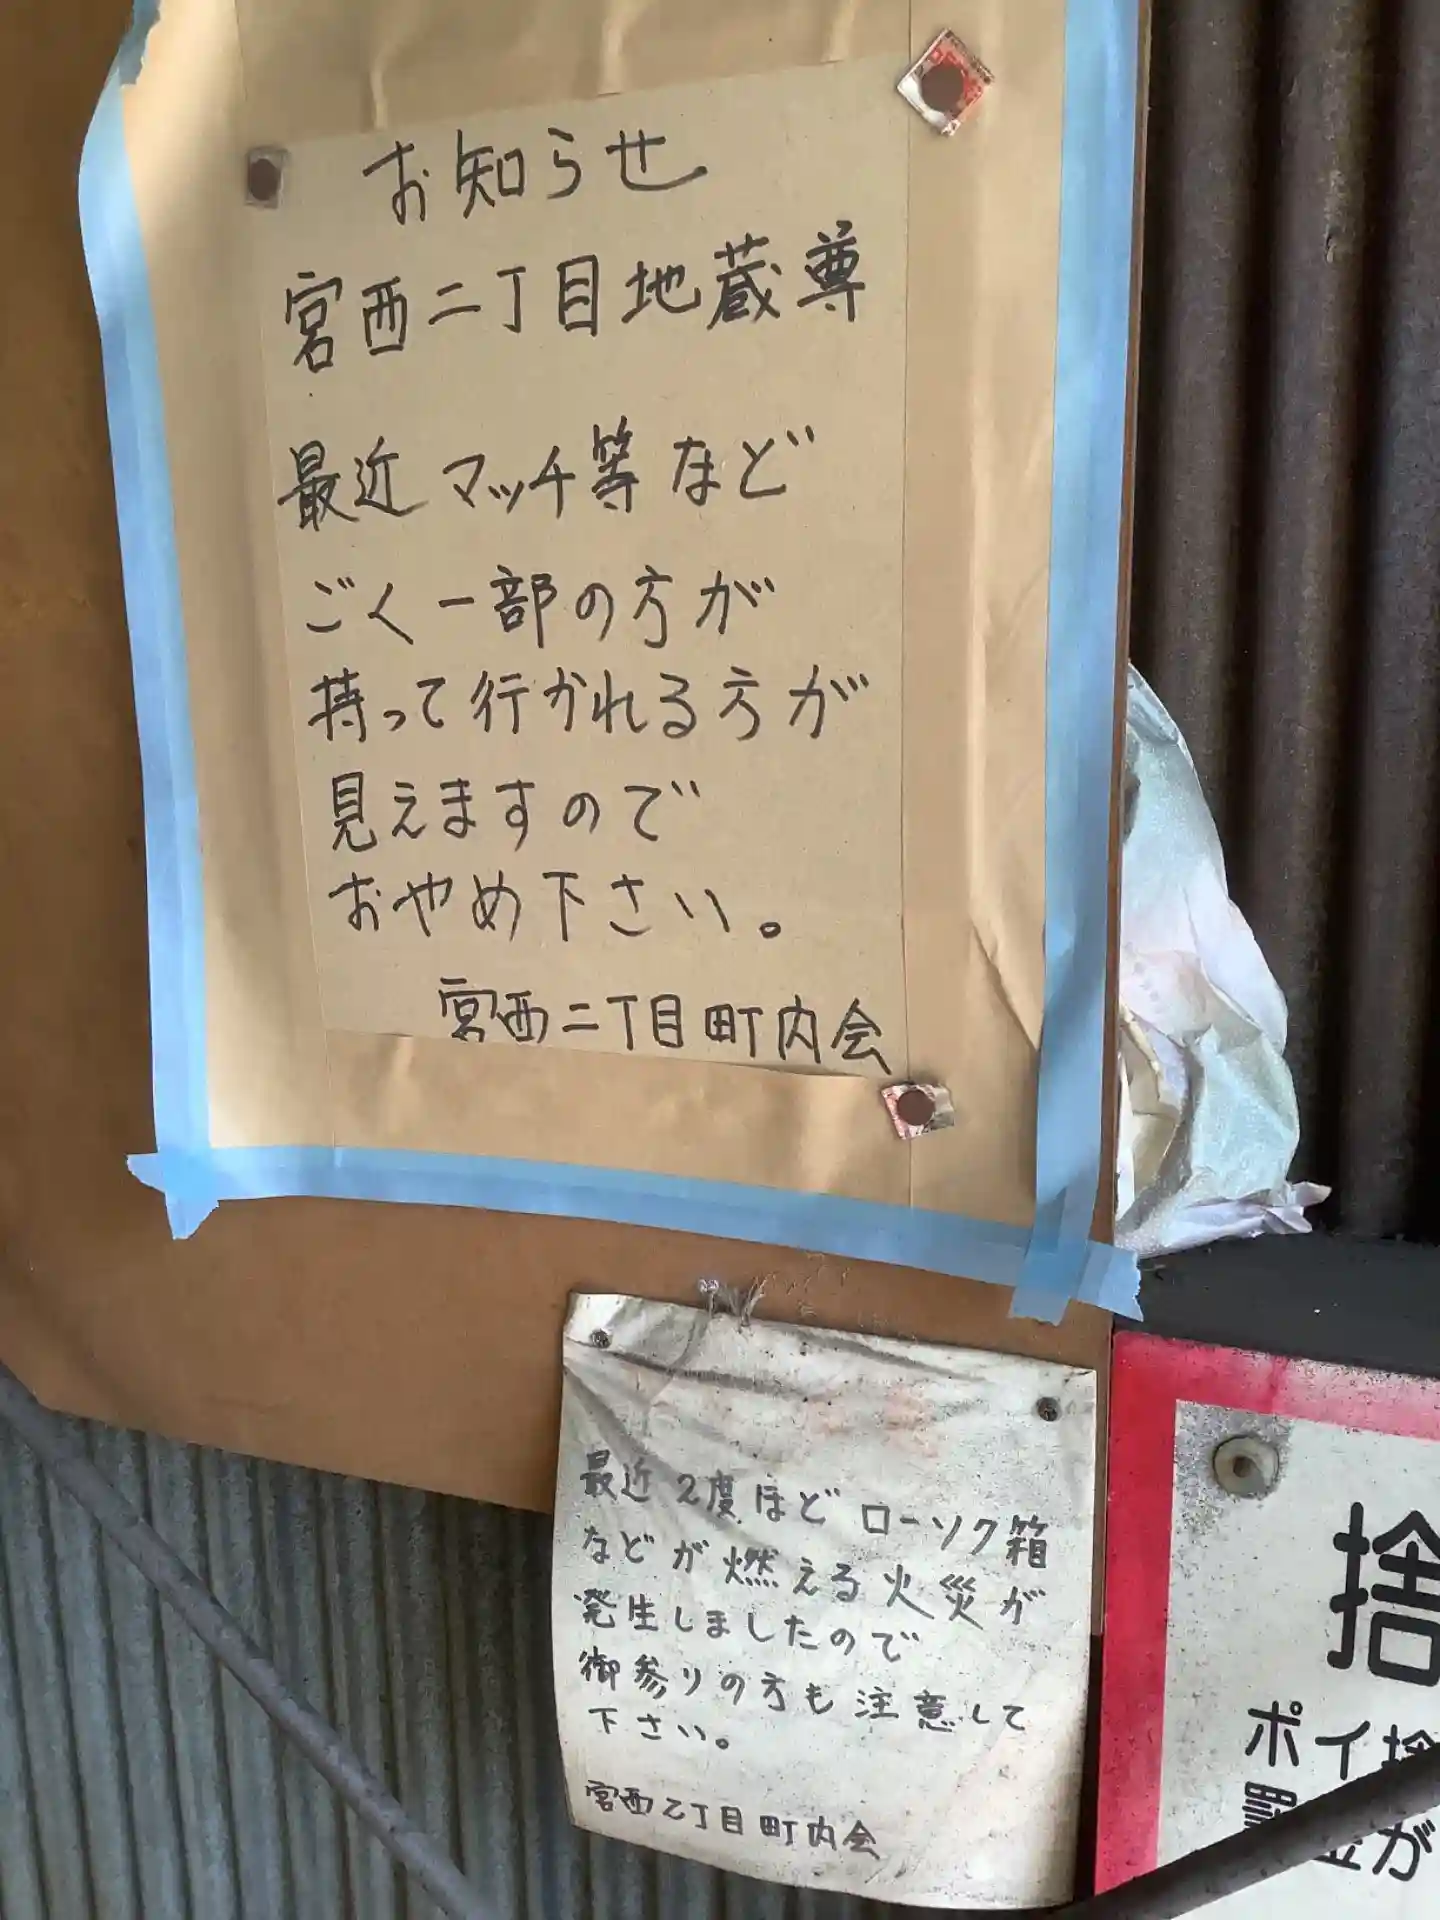 お知らせ
宮西二丁目地蔵尊
最近マッチ等など
ごく一部の方が
持って行かれる方が
見えますので
おやめ下さい。
宮西二丁目町内会
最近2度ほどローソク箱
などが燃える火災が
発生しましたので
御参りの方も注意して
下さい。
宮西乙丁目町内会
捨
ポイ捨
罰金が